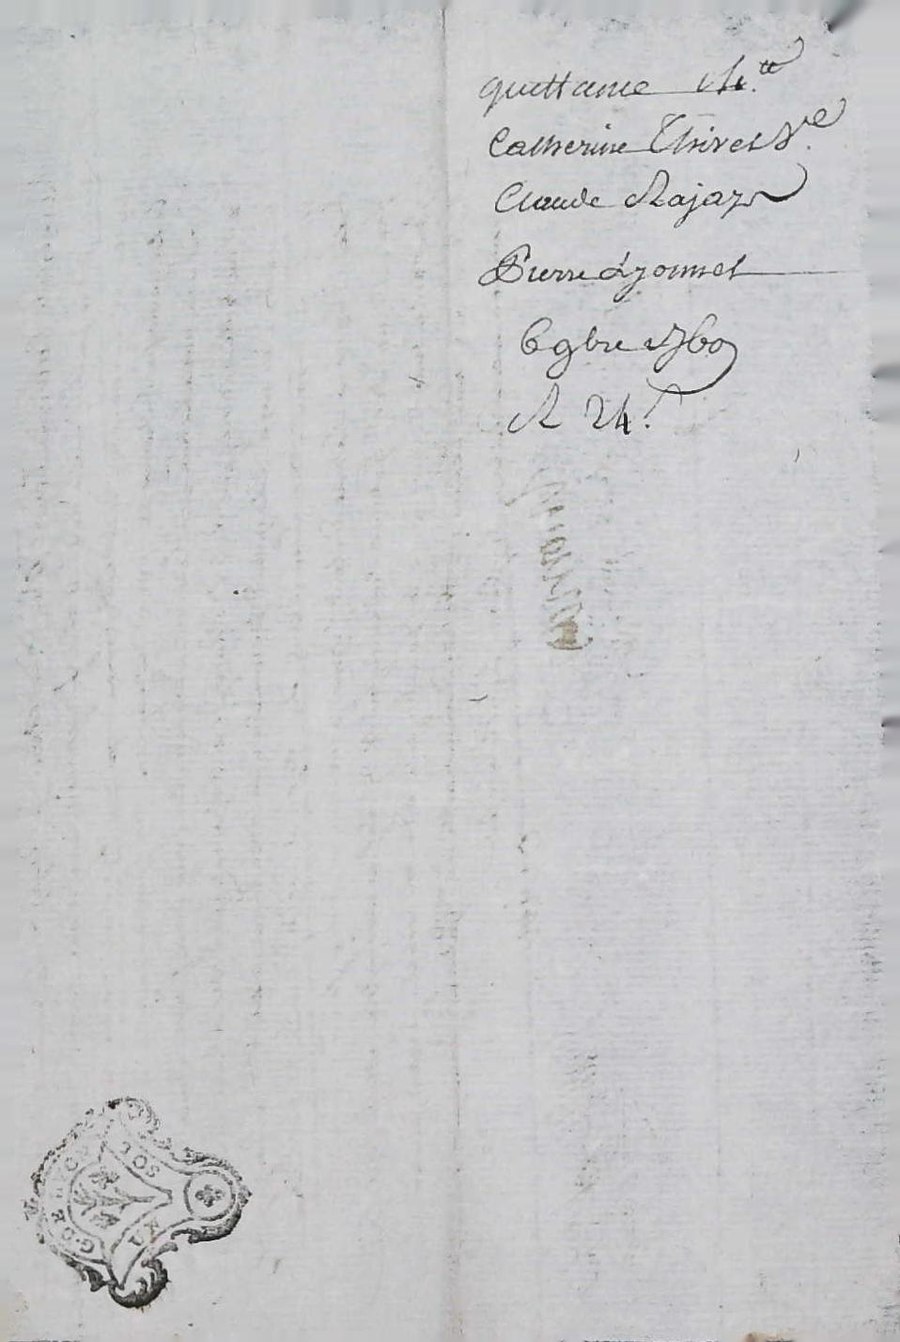 quittance 14.tt
Catherine Thivet Ve.
Claude Rajazn
Pierre Lyonnet
6 9bre 1760
R 24.s
UN SOL
G. DE